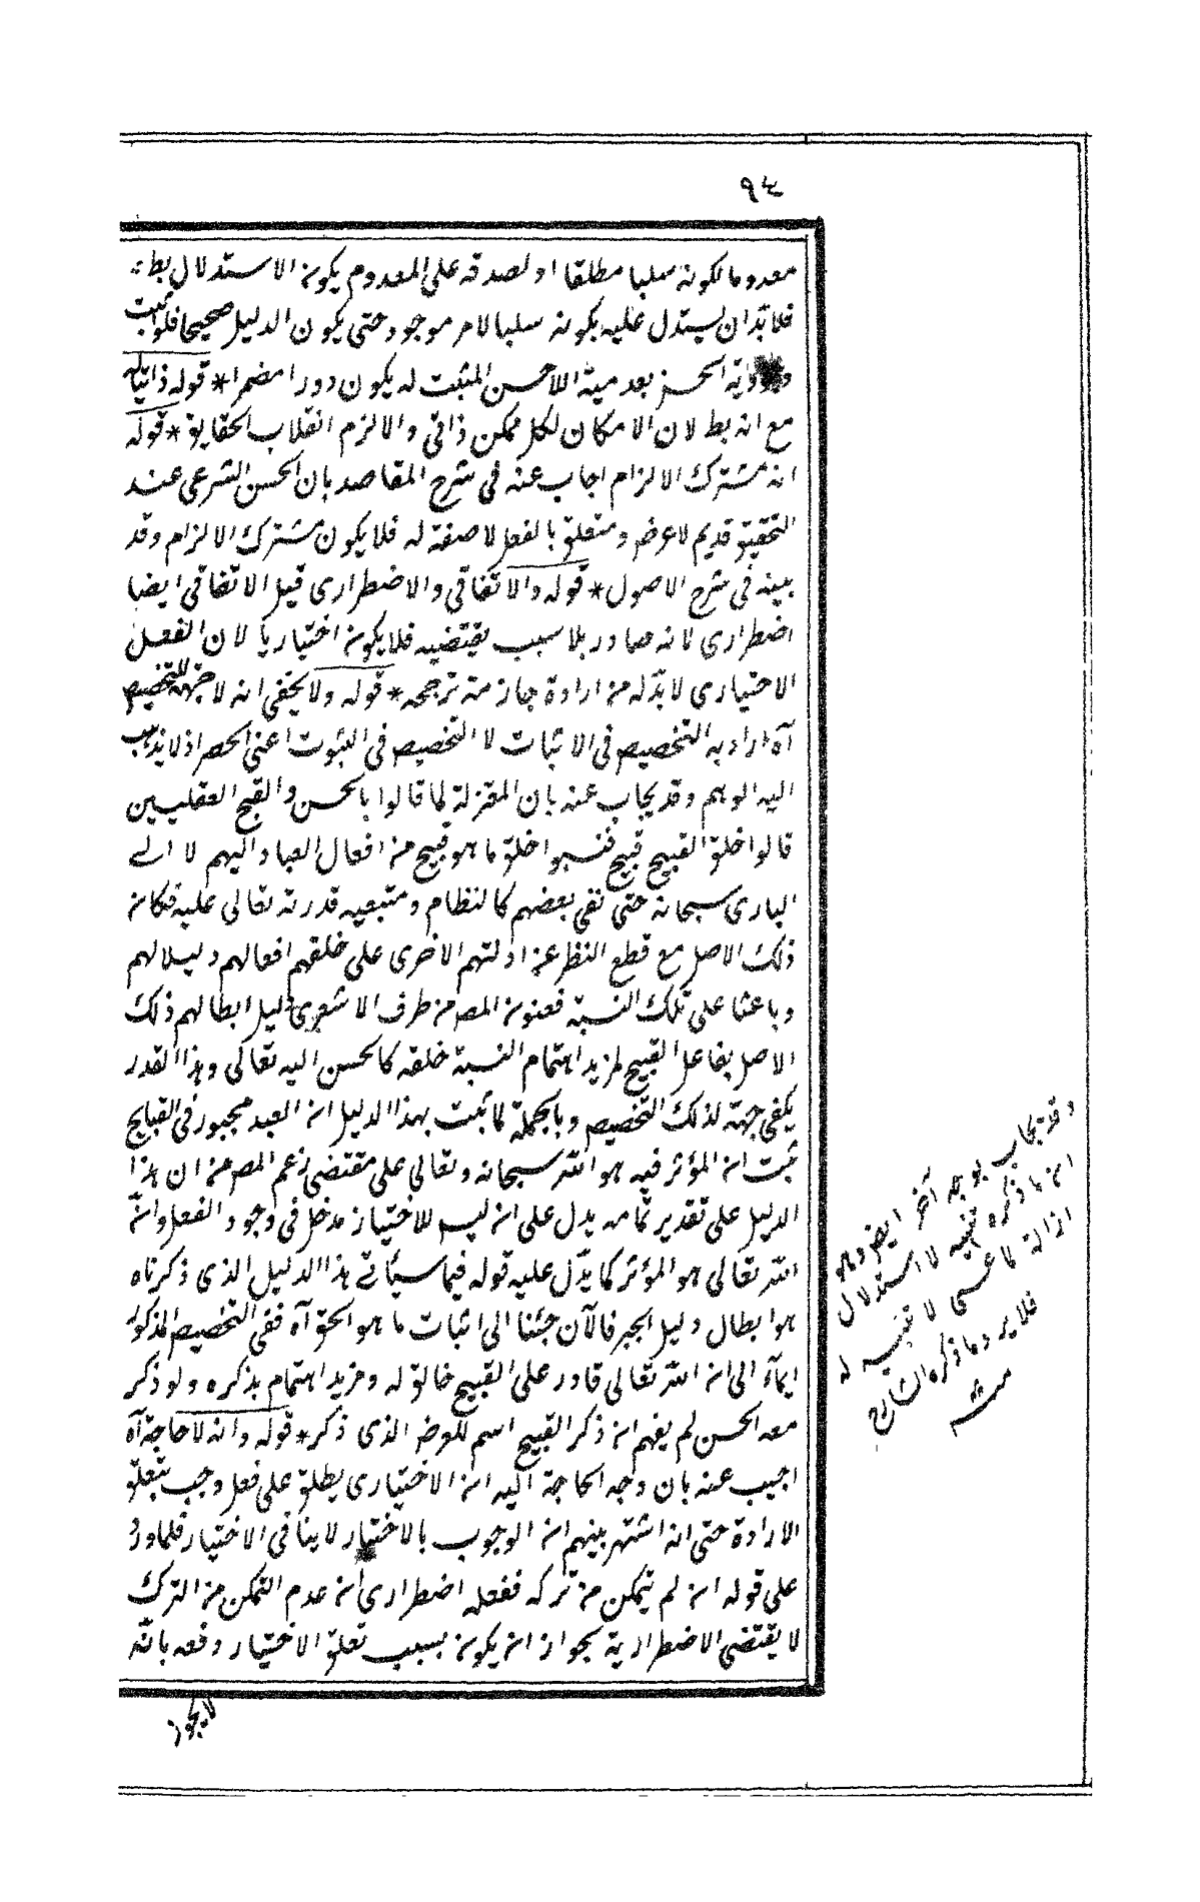 ٩٤
معدوما لكونه سلبا مطلقا او لصدقه على المعدوم يكون الاستدلال بط
فلا بد ان يستدل عليه بكونه سلبا لامر موجود حتى يكون الدليل صحيحا فلو اثبت
الحسن بعدمية اللاحسن المثبت له يكون دورا مضمرا * قوله ذاتيا له
مع انه بط لان الامكان لكل ممكن ذاتي والا لزم انقلاب الحقايق * قوله
انه مشترك الالزام اجاب عنه في شرح المقاصد بان الحسن الشرعي عند
التحقيق قديم لا عرض ومتعلق بالفعل لا صفة له فلا يكون مشترك الالزام وقد
بينه في شرح الاصول * قوله والاتفاقي والاضطراري قيل الاتفاقي ايضا
اضطراري لانه صادر بلا سبب يقتضيه فلا يكون اختياريا لان الفعل
الاختياري لا بد له من ارادة جازمة ترجحه * قوله ولا يخفى انه لا جهة للتخصيص
آه اراد به التخصيص في الاثبات لا التخصيص في الثبوت اعني الحصر اذ لا يذهب
اليه الوهم وقد يجاب عنه بان المعتزلة لما قالوا بالحسن والقبح العقليين
قالوا خلق القبيح قبيح فنسبوا خلق ما هو قبيح من افعال العباد اليهم لا الى
الباري سبحانه حتى نفى بعضهم كالنظام ومتبعيه قدرته تعالى عليه فكان
ذلك الاصل مع قطع النظر عن ادلتهم الاخرى على خلقهم افعالهم دليلا لهم
وباعثا على تلك النسبة فعنون المص من طرف الاشعري دليل ابطالهم ذلك
الاصل بفاعل القبيح لمزيد اهتمام النسبة خلقه كالحسن اليه تعالى وهذا القدر
يكفي جهة لذلك التخصيص وبالجملة لما ثبت بهذا الدليل ان العبد مجبور في القبايح
ثبت ان المؤثر فيه هو الله سبحانه وتعالى على مقتضى زعم المص من ان هذا
الدليل على تقدير تمامه يدل على ان ليس للاختيار مدخل في وجود الفعل وان
الله تعالى هو المؤثر كما يدل عليه قوله فيما سيأتي هذا الدليل الذي ذكرناه
هو ابطال دليل الجبر فالآن جئنا الى اثبات ما هو الحق آه ففي التخصيص المذكور
ايماء الى ان الله تعالى قادر على القبيح خالق له ومزيد اهتمام بذكره ولو ذكر
معه الحسن لم يفهم ان ذكر القبيح اسم للعرض الذي ذكر * قوله وانه لا حاجة آه
اجيب عنه بان وجه الحاجة اليه ان الاختياري يطلق على فعل وجب بتعلق
الارادة حتى انه اشتهر بينهم ان الوجوب بالاختيار لا ينافي الاختيار فلما ورد
على قوله ان لم يتمكن من تركه ففعله اضطراري ان عدم التمكن من الترك
لا يقتضي الاضطرارية لجواز ان يكون بسبب تعلق الاختيار دفعه بانه
لا يجوز
وقد يجاب بوجه آخر ايضا وهو
ان ما ذكره تنبيه لا استدلال
ازالة لما عسى لا تنبيه له
فلا يرد ما ذكره الشارح
منه